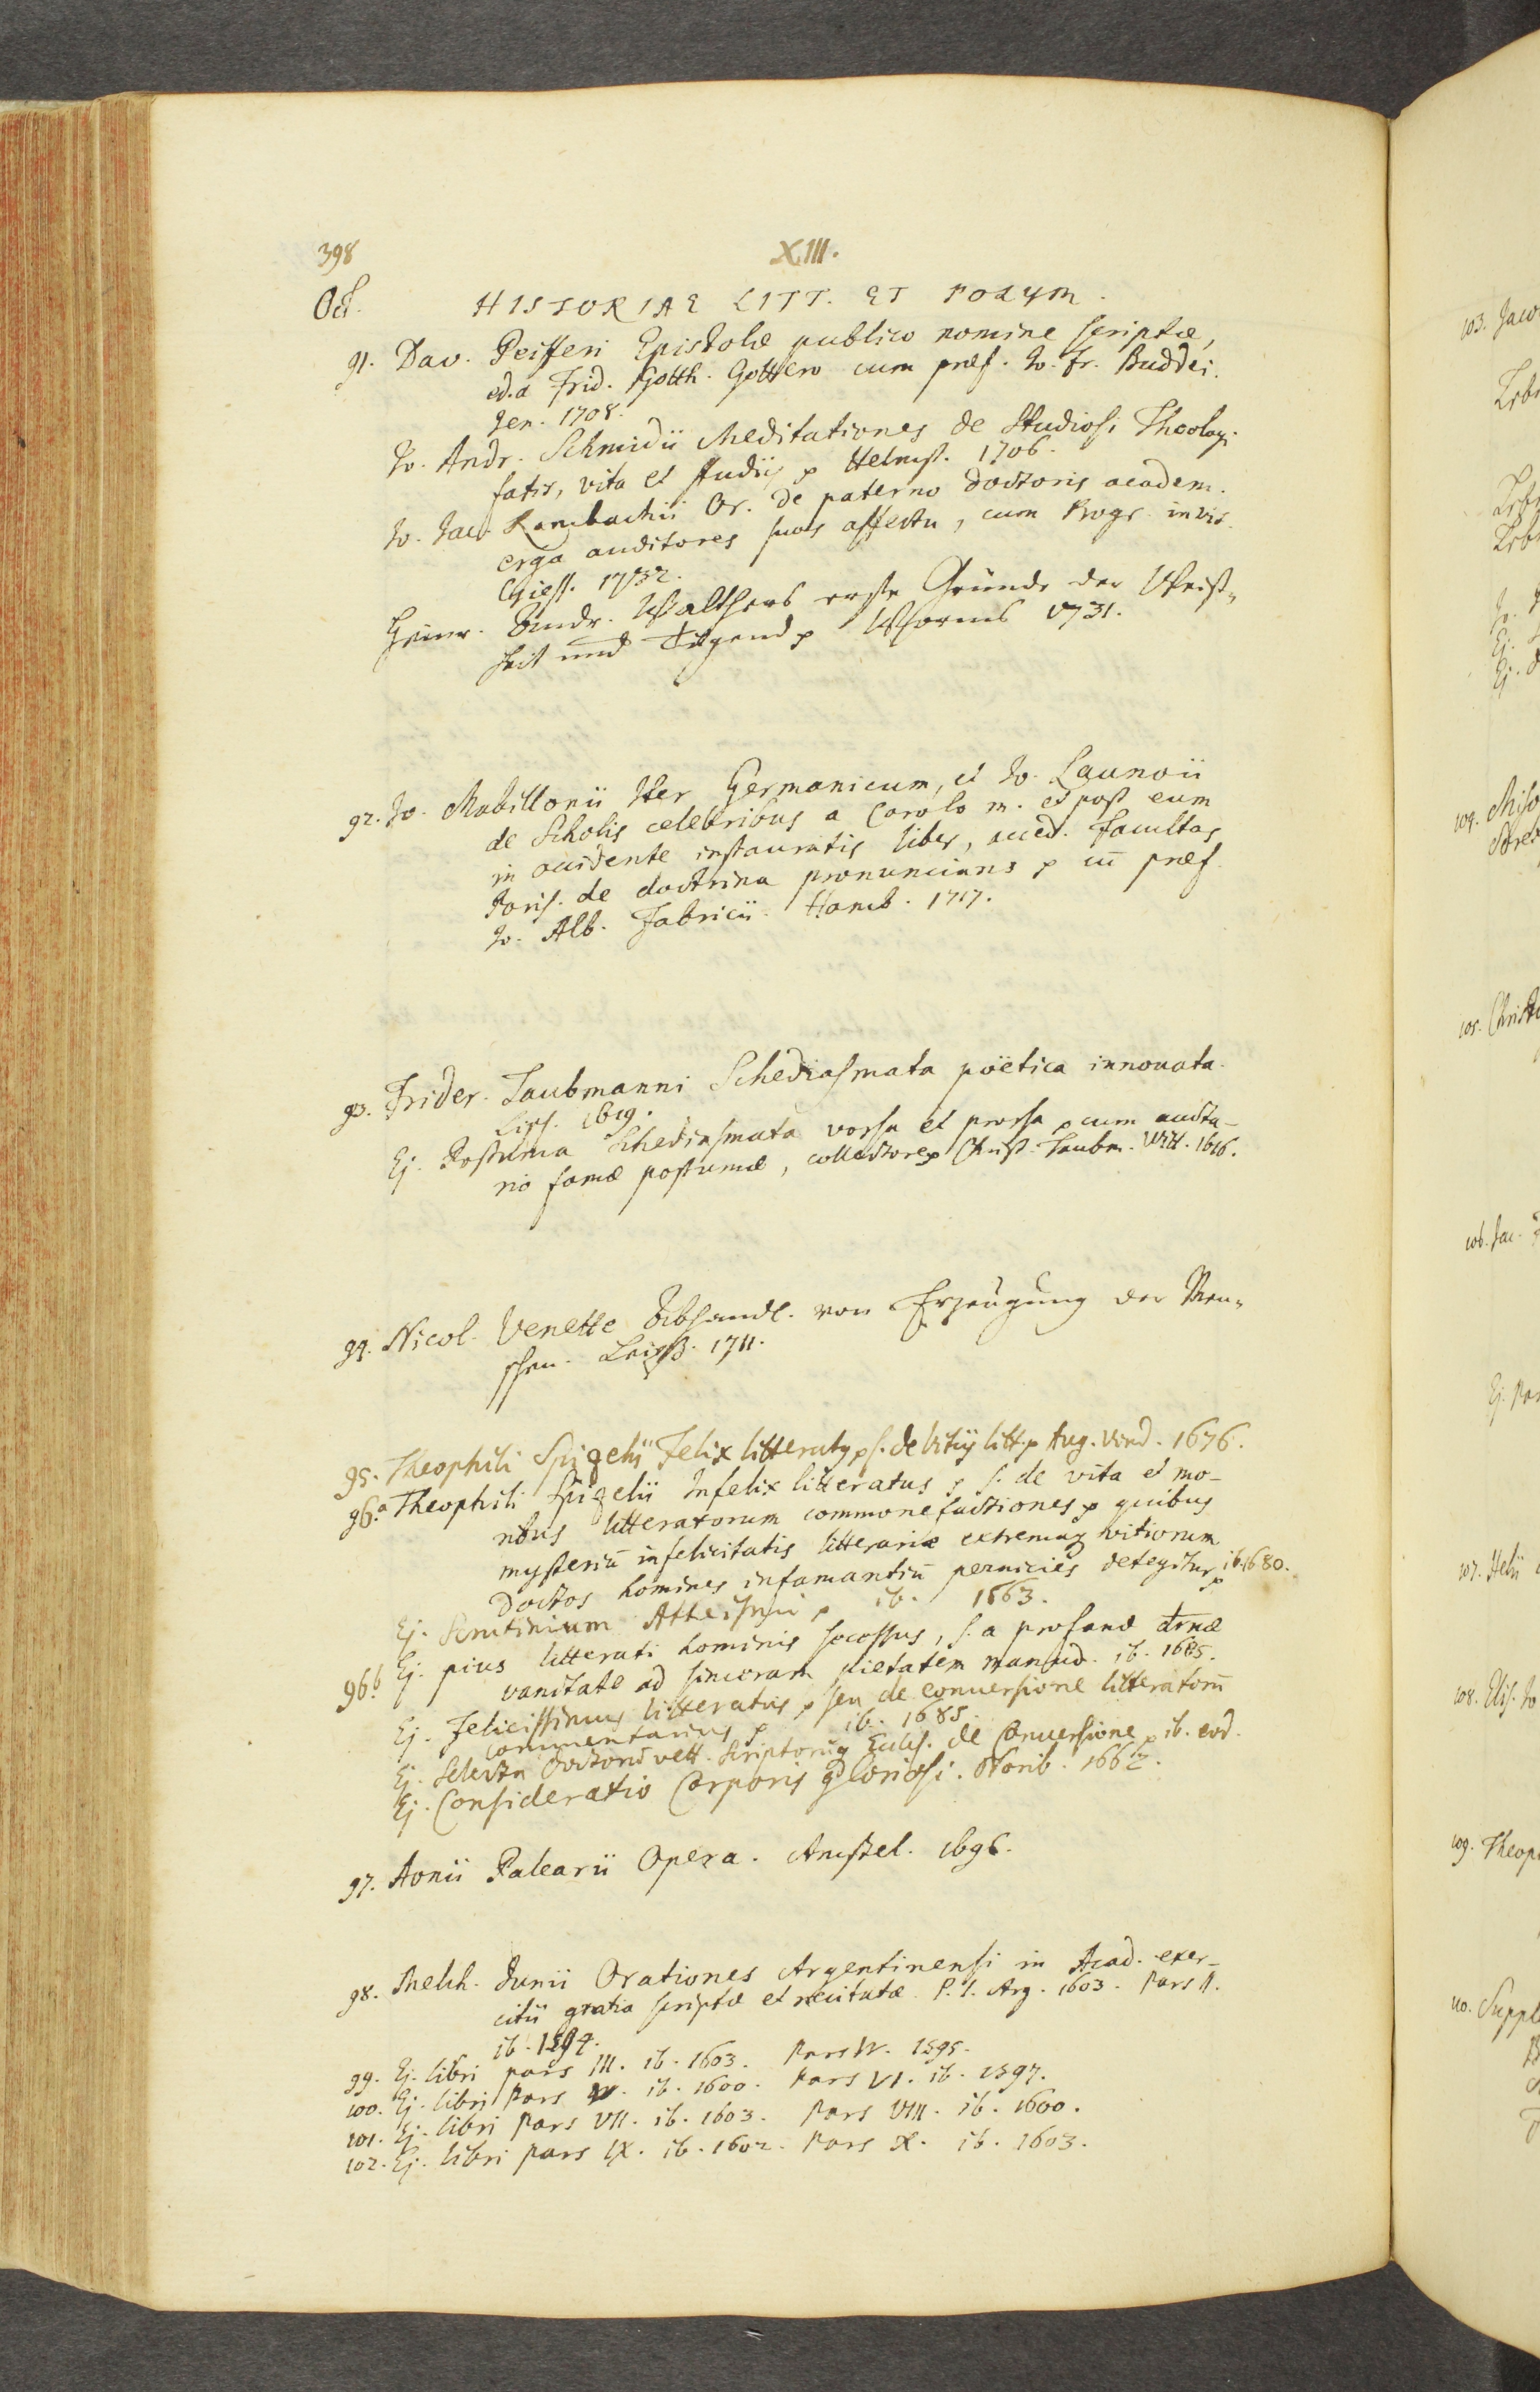 398
XIII.
Oct.
HISTORIAE LITT. ET POLYM.
91. Dav. Peifferi Epistolæ publico nomine scriptæ,
ed. a Frid. Gotth. Gottero cum præf. Jo. Fr. Buddei.
Jen. 1708.
Jo. Andr. Schmidii Meditationes de Studiosi Theologi
fatis, vita et studiis p Helmst. 1706.
Jo. Jac. Rambachii Or. de paterno doctoris academ.
erga auditores suos affectu, cum Progr. invit.
Giess. 1732.
Heinr. Andr. Walthers erste Gründe der Weiß-
heit und Tugend p Worms 1731.
92. Jo. Mabillonii Iter Germanicum, et Jo. Launoii
de Scholis celebribus a Carolo M. et post eum
in occidente instauratis liber, acced. Facultas
Paris. de doctrina pronuncians p cū præf.
Jo. Alb. Fabricii. Hamb. 1717.
93. Frider. Taubmanni Schediasmata poëtica innovata.
Lips. 1619.
Ej. Postuma Schediasmata vorsa et prorsa p cum aucta-
rio famæ postumæ, collectore p Christ. Taubm. Witt. 1616.
94. Nicol. Venette Abhandl. von Erzeugung der Men-
schen. Leipz. 1711.
95. Theophili Spizelii Felix litteratus p s. de Vitiis litt. p Aug. Vind. 1676.
96.a Theophili Spizelii Infelix litteratus p s. de vita et mo-
ribus litteratorum commonefactiones p quibus
mysteriū infelicitatis litterariæ extremaq vitiorum
doctos homines infamantiū pernicies detegitur p ib. 1680.
Ej. Scrutinium Atheismi p ib. 1663.
96.b Ej. pius litterati hominis secessus, s. a profanæ drnæ
vanitate ad sinceram pietatem manud. ib. 1685.
Ej. Felicissimus litteratus p seu de conversione litteratorū
commentarius p ib. 1685.
Ej. Selecta Doctorū vett. Scriptorūq Eccles. de Conversione p ib. eod.
Ej. Consideratio Corporis gloriosi. Norib. 1662.
97. Aonii Palearii Opera. Amstel. 1696.
98. Melch. Junii Orationes Argentinensi in Acad. exer-
citii gratia scriptæ et recitatæ. P. I. Arg. 1603. Pars II.
ib. 1594.
99. Ej. libri pars III. ib. 1603. Pars IV. 1595.
100. Ej. libri Pars V. ib. 1600. Pars VI. ib. 1597.
101. Ej. libri Pars VII. ib. 1603. Pars VIII. ib. 1600.
102. Ej. libri pars IX. ib. 1602. Pars X. ib. 1603.
103. Jaco
104.
105. Christ
106. Jac.
Ej. Par
107. Helii
108. Elis. Jo
109. Theop
110. Suppl